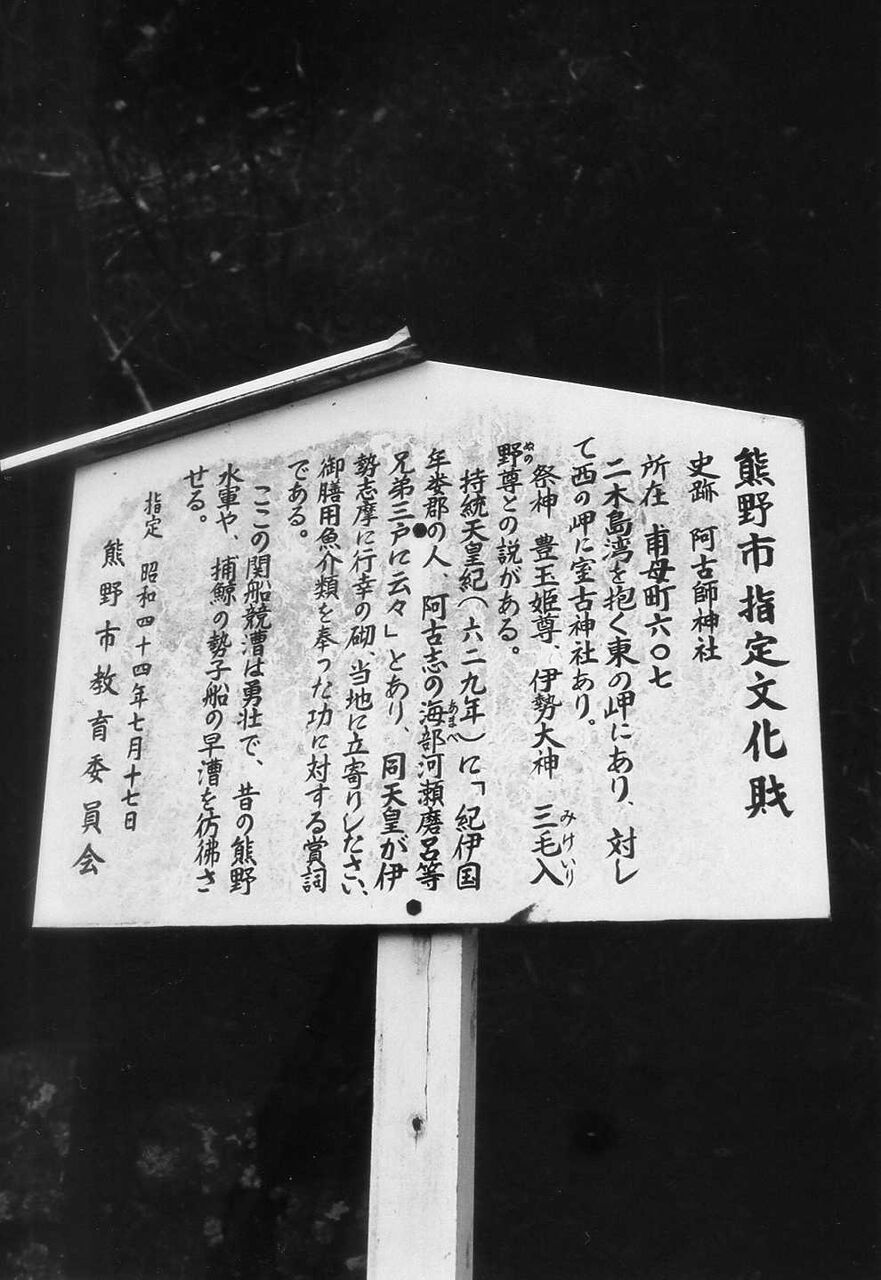 熊野市指定文化財
史跡　阿古師神社
所在　甫母町六〇七
二木島湾を抱く東の岬にあり、対し
て西の岬に室古神社あり。
祭神　豊玉姫尊、伊勢大神　三毛入
みけいり
野尊との説がある。
ぬの
持統天皇紀(六二九年)に「紀伊国
年婁郡の人、阿古志の海部河瀬磨呂等
あまべ
兄弟三戸に云々」とあり、同天皇が伊
勢志摩に行幸の砌、当地に立寄りしたさい、
御膳用魚介類を奉った功に対する賞詞
である。
ここの関船競漕は勇壮で、昔の熊野
水軍や、捕鯨の勢子船の早漕を彷彿さ
せる。
指定　昭和四十四年七月十七日
熊野市教育委員会